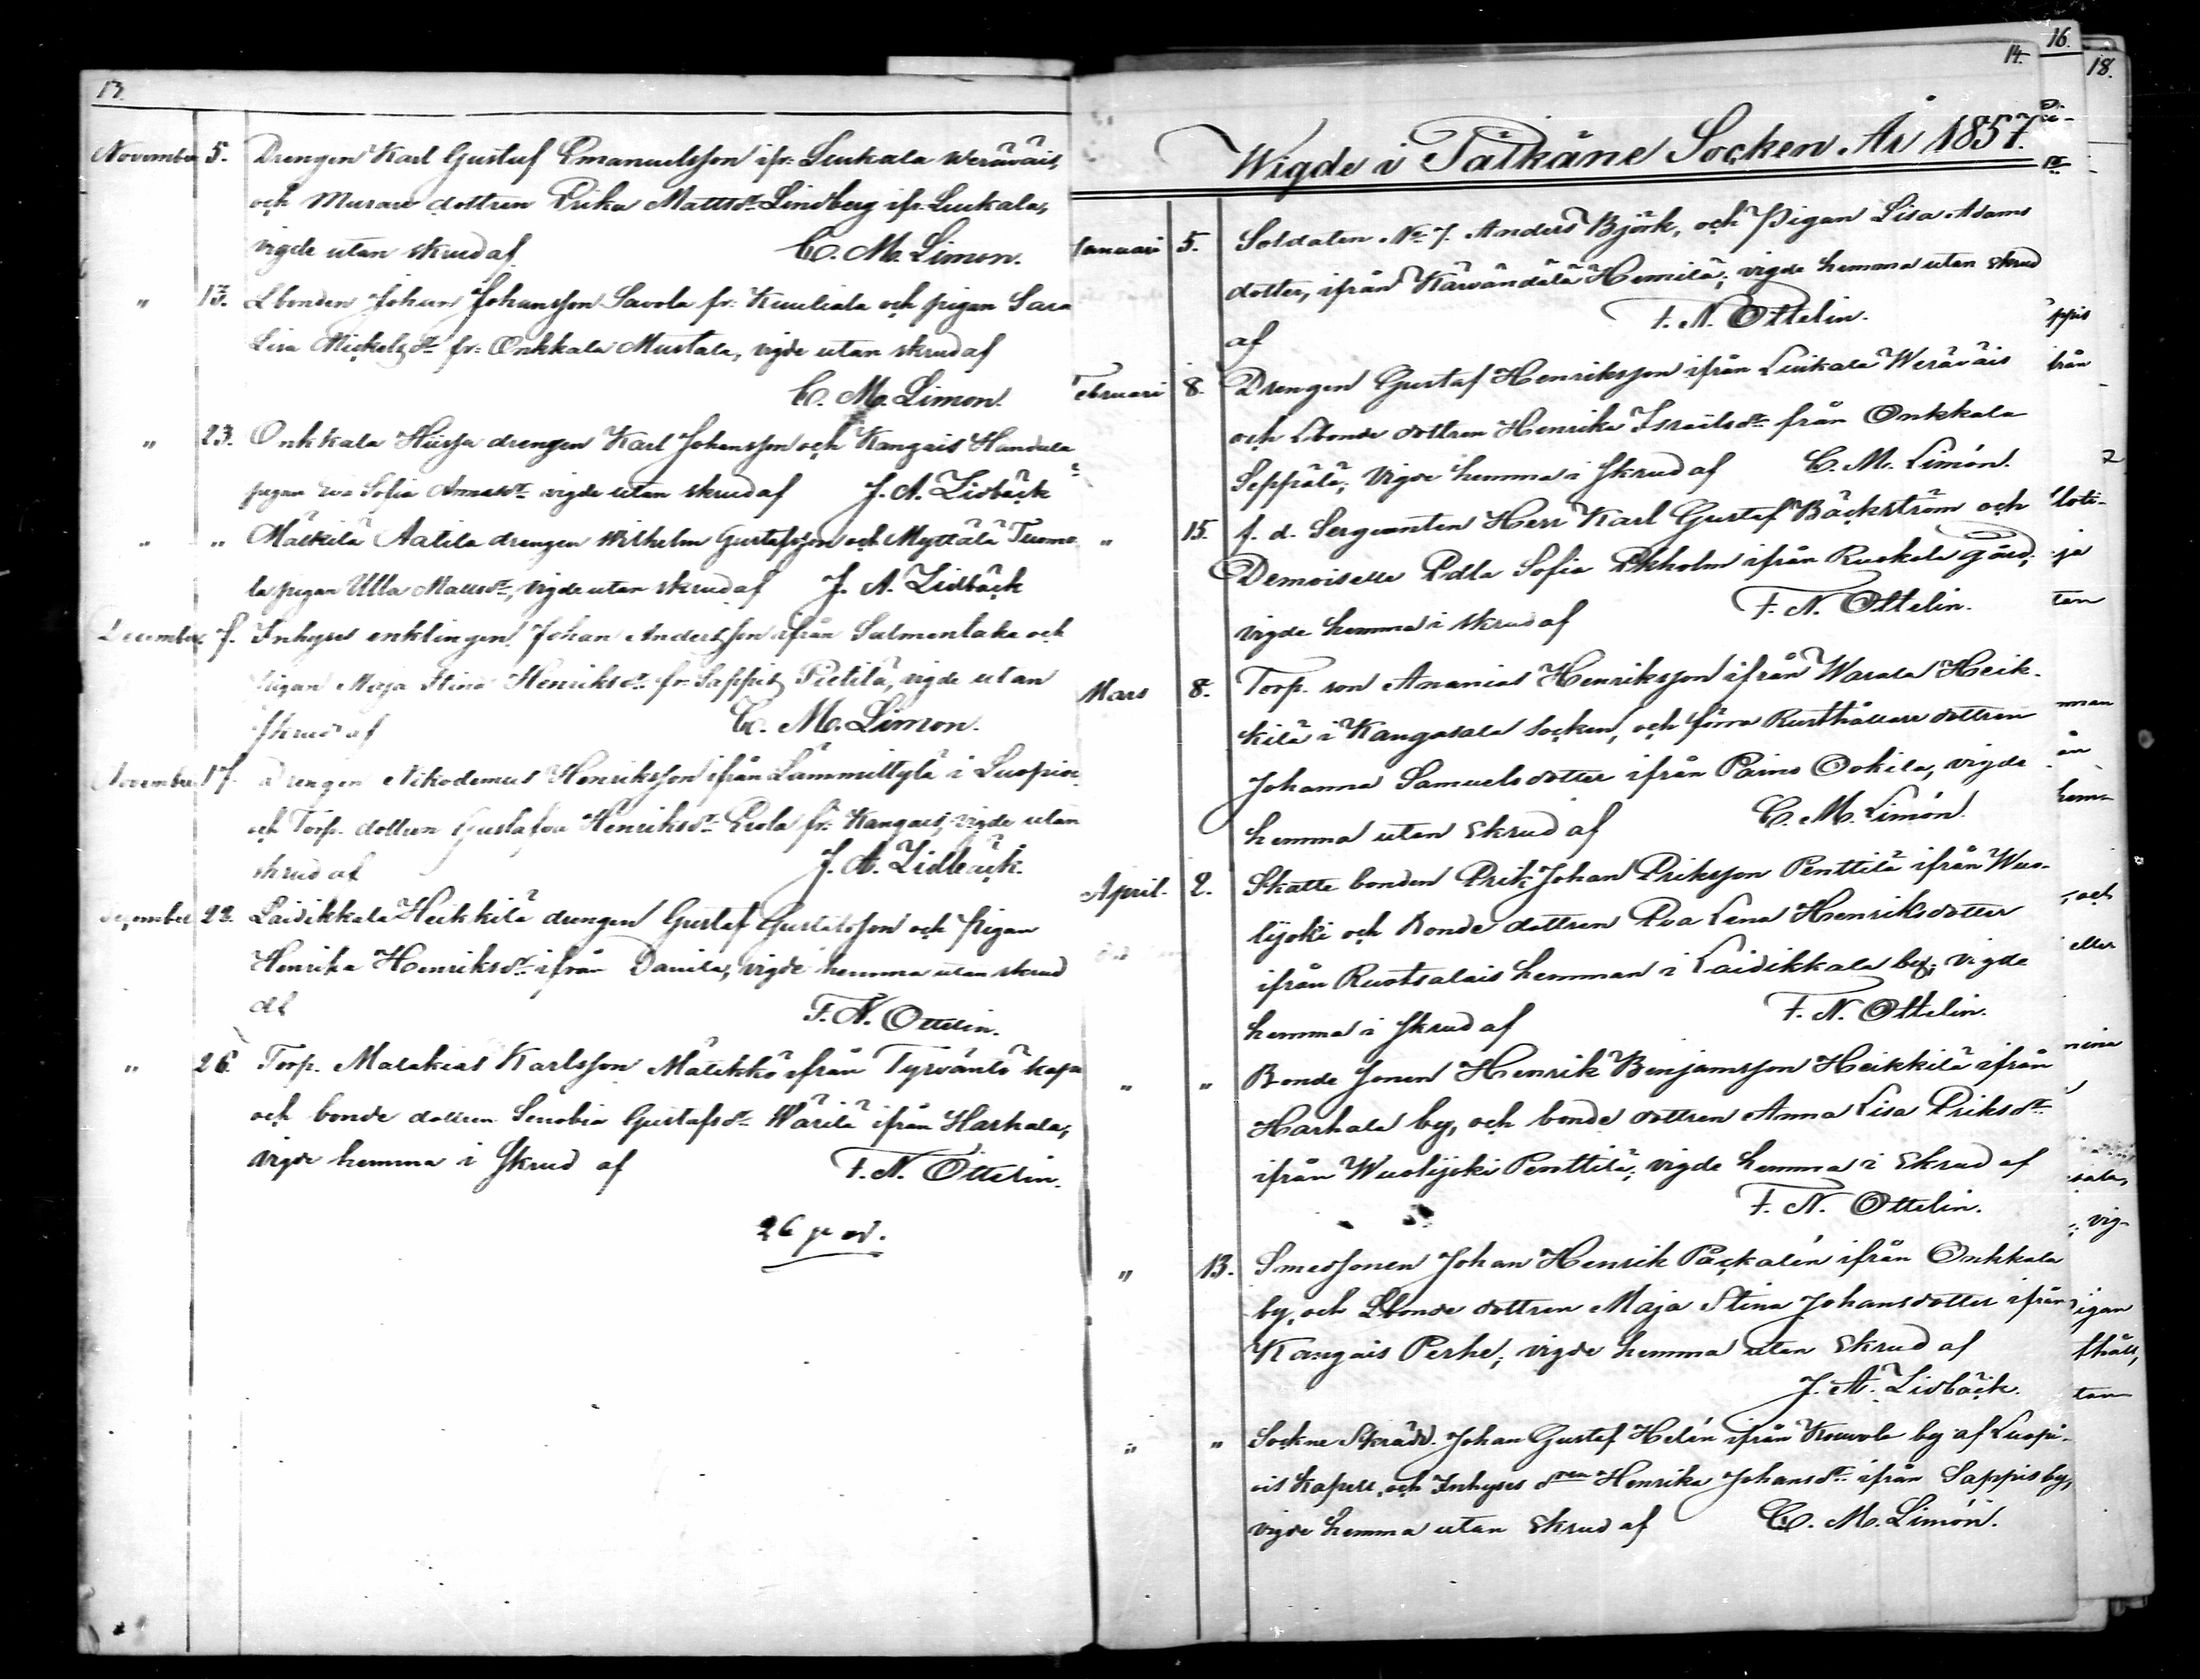 13.
November 5. Drengen Karl Gustaf Emanuelsson ifr: Luikala Weräväis,
och Murare dottren Erika Mattsdr Lindberg ifr. Luikala,
vigde utan skrud af C. M. Limon.
" 13. Lbonden Johan Johansson Savola fr: Kuuliala och pigan Sara
Lisa Mickelsdr fr: Onkkala Mustala, vigde utan skrud af
C. M. Limon.
" 23. Onkkala drengen Karl Johansson och Kangais Handula
pigan Eva Sofia vigde utan skrud af J. A. Lidbäck
" " Mälkilä Aatila drengen Wilhelm Gustafsson och Myttälä Tuomo
la pigan Ulla Mattsdr, vigde utan skrud af J. A. Lidbäck
December 7. Inhyses enklingen Johan Andersson ifrån Salmentaka och
pigan Maja Stina Henriksdr fr: Sappis Pietilä, vigde utan
skrud af C. M. Limon.
November 17. Drengen Nikodemus Henriksson ifrån Lammittylä i Luopiois
och Torp. dottren Gustafva Henriksdr Erola fr: Kangais, vigde utan
skrud af J. A. Lidbäck.
December 22. Laidikkala Heikkilä drengen Gustaf Gustafsson och Pigan
Henrika Henriksdr ifrån Danila, vigde hemma utan skrud
af F. N. Ottelin.
" 26. Torp. Malakias Karlsson Mälikkö ifrån Tyrväntö kapl
och bonde dottren Senobia Gustafsdr Wärilä ifrån Harhala,
vigde hemma i Skrud af F. N. Ottelin.
26 par.
14.
16.
18.
Wigde i Pälkäne Socken År 1857.
Januari 5. Soldaten No 7. Anders Björk, och Pigan Lisa Adams
dotter, ifrån Kärvändälä Hemilä; vigde hemma utan skrud
af F. N. Ottelin.
Februari 8. Drengen Gustaf Henriksson ifrån Luikala Weräväis
och Lbonde dottren Henrika Israelsdr från Onkkala
Seppälä; vigde hemma i skrud af C. M. Limón.
" 15. f. d. Sergeanten Herr Karl Gustaf Bäckström och
Demoiselle Edla Sofia Ekholm ifrån Ruokola gård;
vigde hemma i skrud af F. N. Ottelin.
Mars 8. Torp. son Ananias Henriksson ifrån Warala Heik-
kilä i Kangasala socken, och förra Rusthållare dottren
Johanna Samuelsdotter ifrån Painö Ookila, vigde
hemma utan skrud af C. M. Limón.
April. 2. Skatte bonden Erik Johan Eriksson Penttilä ifrån Wuo-
lijoki och Bonde dottren Eva Lena Henriksdotter
ifrån Ruotsalais hemman i Laidikkala by; vigde
hemma i skrud af F. N. Ottelin.
" " Bonde sonen Henrik Benjamsson Heikkilä ifrån
Harhala by, och bonde dottren Anna Lisa Eriksdr
ifrån Wuolijoki Penttilä; vigde hemma i skrud af
F. N. Ottelin.
" 13. Smedsonen Johan Henrik Päckalén ifrån Onkkala
by, och Lbonde dottren Maja Stina Johansdotter ifrån
Kangais Perhe; vigde hemma utan skrud af
J. A. Lidbäck.
" " Sockne Skrädd. Johan Gustaf Helén ifrån Kouvola by af Luopi-
ois kapell, och Inhyses dren Henrika Johansdr ifrån Sappis by,
vigde hemma utan skrud af C. M. Limón.
ppis
från
ja
tan
hem-
och
eller
mina
vig-
igan
tan